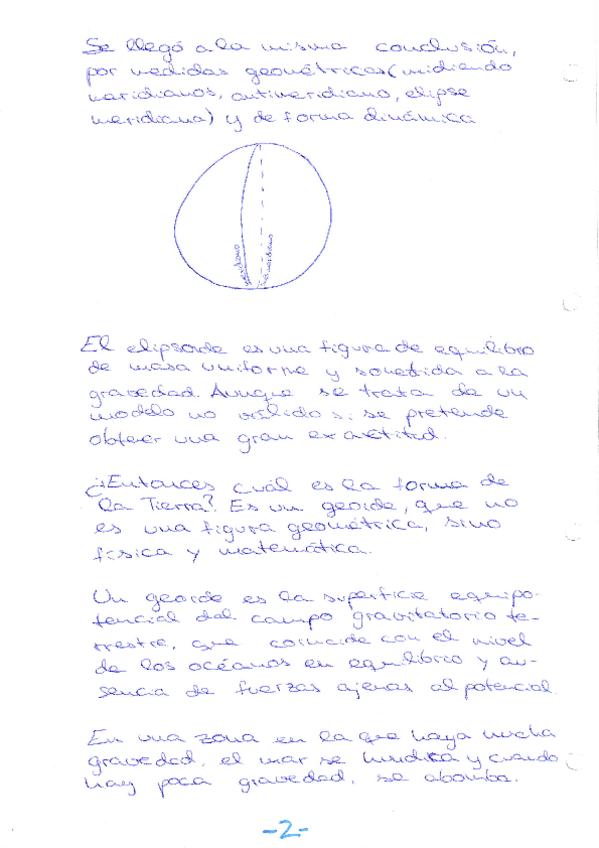 Se llegó a la misma conclusión,
por medidas geométricas (midiendo
meridianos, antimeridiano, elipse
meridiana) y de forma dinámica
meridiano
antimeridiano
El elipsoide es una figura de equilibrio
de masa uniforme y sometida a la
gravedad. Aunque se trata de un
modelo no válido si se pretende
obtener una gran exactitud.
¿Entonces cuál es la forma de
la Tierra? Es un geoide, que no
es una figura geométrica, sino
física y matemática.
Un geoide es la superficie equipo-
tencial del campo gravitatorio te-
rrestre, que coincide con el nivel
de los océanos en equilibrio y au-
sencia de fuerzas ajenas al potencial.
En una zona en la que haya mucha
gravedad, el mar se hundirá y cuando
hay poca gravedad, se abomba.
-2-